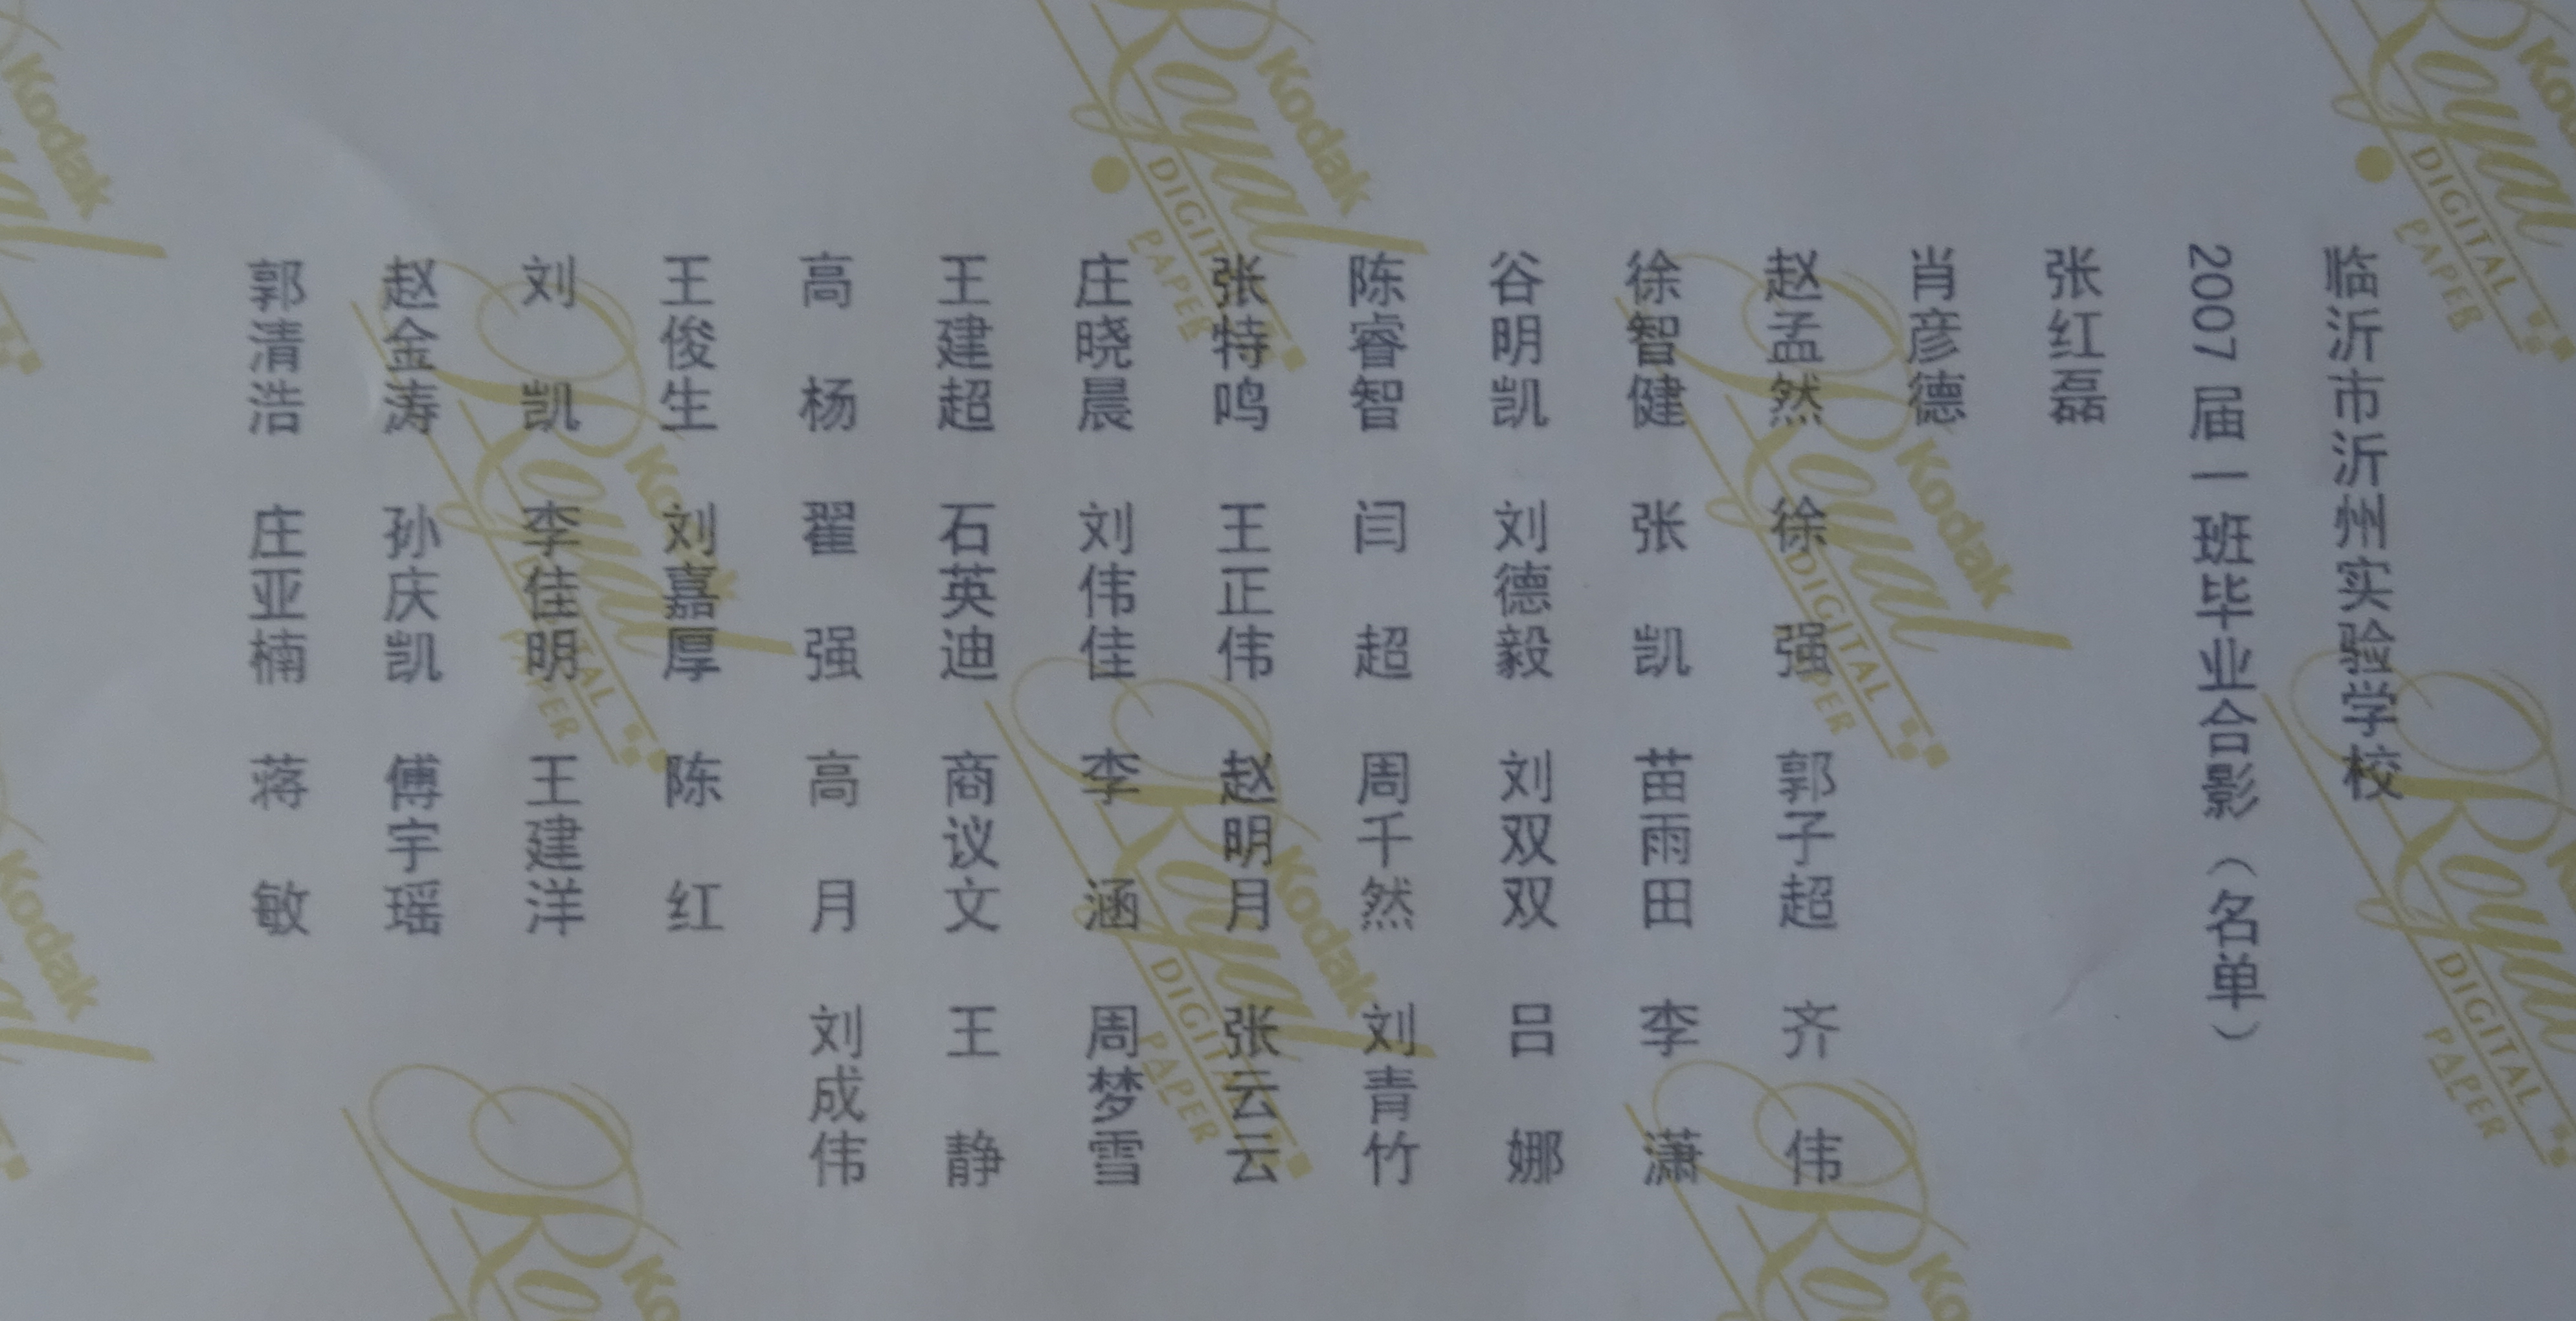 临沂市沂州实验学校
2007 届一班毕业合影（名单）
张红磊
肖彦德
赵孟然 徐强 郭子超 齐伟
徐智健 张凯 苗雨田 李潇
谷明凯 刘德毅 刘双双 吕娜
陈睿智 闫超 周千然 刘青竹
张特鸣 王正伟 赵明月 张云云
庄晓晨 刘伟佳 李涵 周梦雪
王建超 石英迪 商议文 王静
高杨 翟强 高月 刘成伟
王俊生 刘嘉厚 陈红
刘凯 李佳明 王建洋
赵金涛 孙庆凯 傅宇瑶
郭清浩 庄亚楠 蒋敏
Kodak
Royal
DIGITAL
PAPER
Kodak
Royal
DIGITAL
PAPER
Kodak
Royal
DIGITAL
PAPER
Kodak
Royal
DIGITAL
PAPER